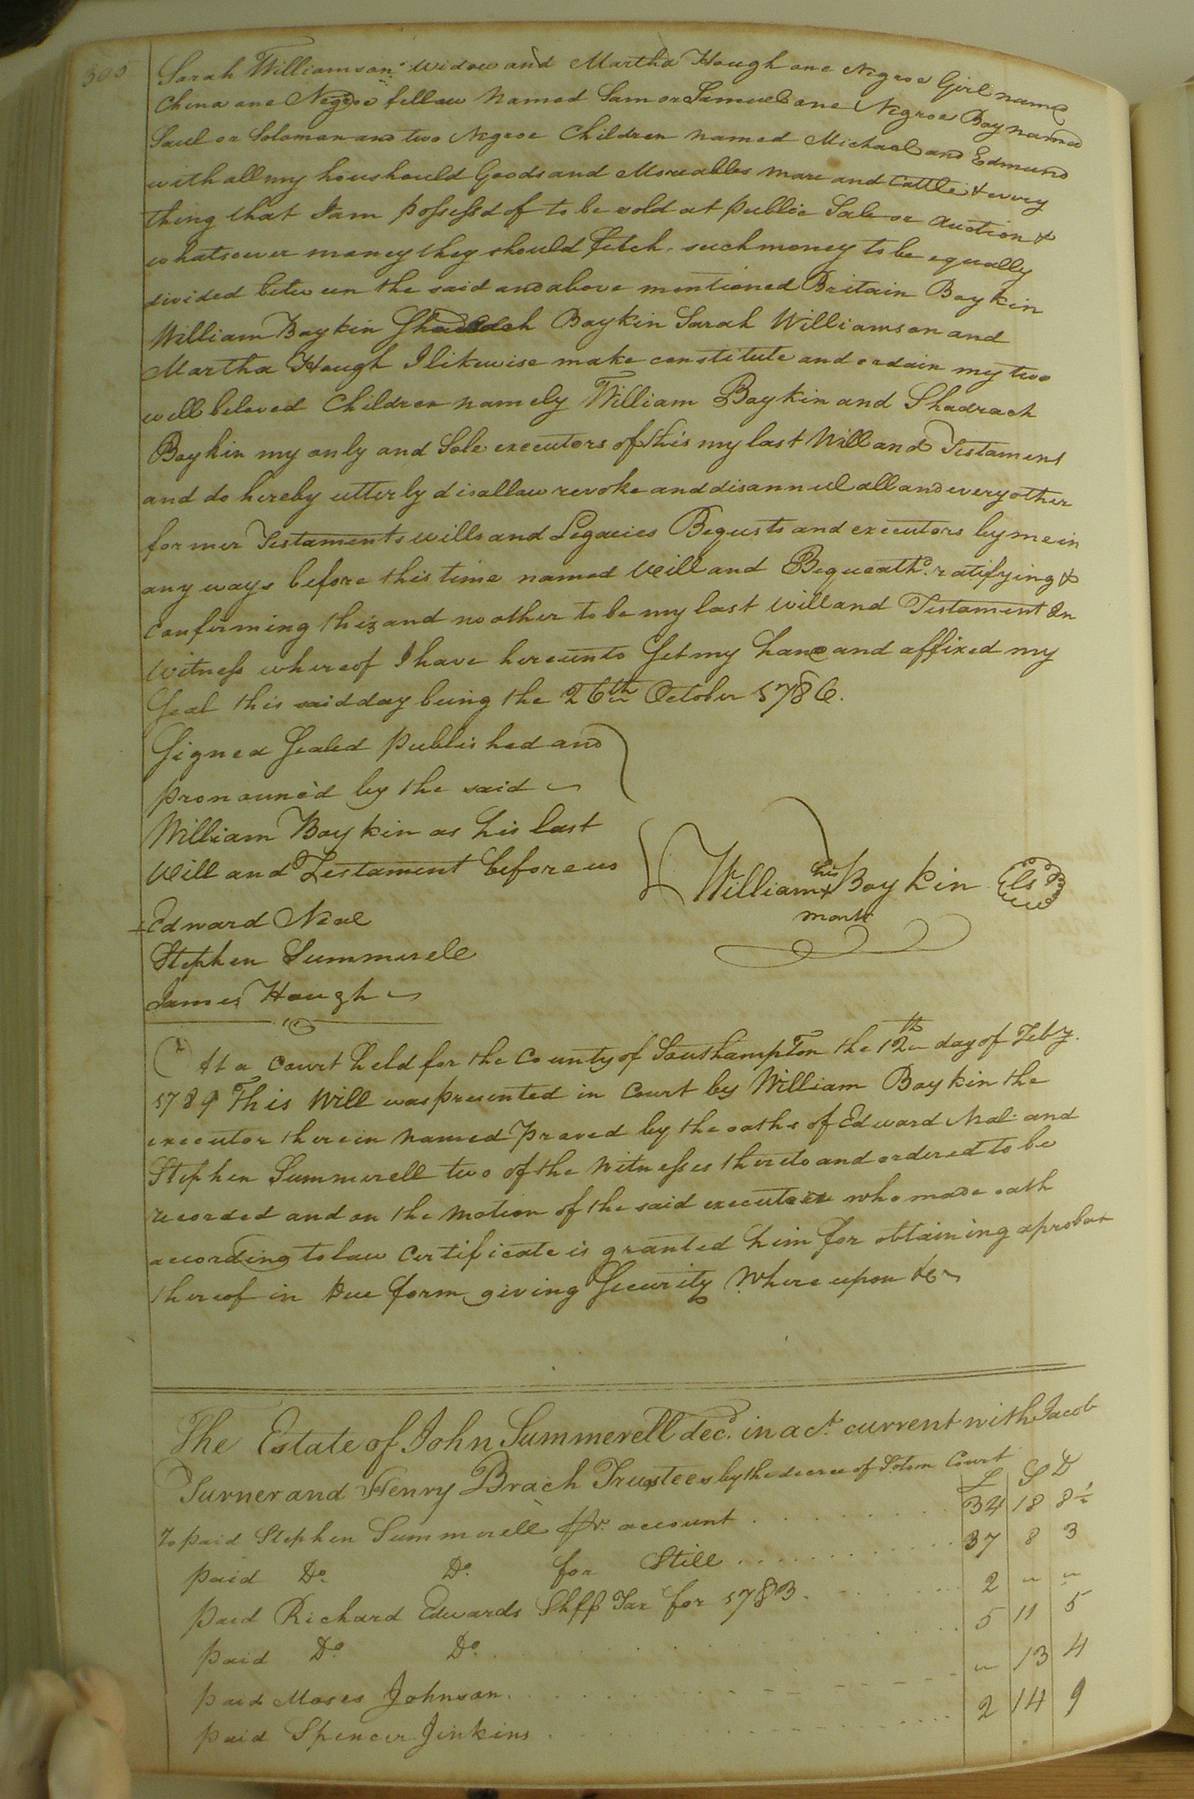 305
Sarah Williamson widow and Martha Hough one Negroe Girl name
China one Negroe fellow Named Sam or Samuel one Negroe Boy named
Saul or Soloman and two Negroe Children named Michael and Edmund
with all my houshould Goods and Moveables mare and Cattle & every
thing that I am possessd of to be sold at publie Sale or Auction &
whatsoever money they should fetch such money to be equally
divided between the said and above mentioned Britain Boykin
William Boykin Shadrach Boykin Sarah Williamson and
Martha Hough I likewise make constitute and ordain my two
well beloved Children namely William Boykin and Shadrach
Boykin my only and Sole executors of this my last Will and Testament
and do hereby utterly disallow revoke and disannul all and every other
former Testaments wills and Legacies Bequests and executors by me in
any ways before this time named Will and Bequeathd. ratifying &
Confirming this and no other to be my last will and Testament In
Witness whereof I have hereunto Set my hand and affixed my
Seal this said day being the 26th October 1786.
Signed Sealed Published and
pronouned by the said
William Boykin as his last
Will and Testament before us
William his Boykin Ls
mark
Edward Neal
Stephen Summerell
James Hough
At a Court held for the County of Southampton the 12th day of Feby.
1789 This Will was presented in Court by William Boykin the
executor therein Named proved by the oaths of Edward Neal and
Stephen Summerell two of the Witnesses thereto and ordered to be
recorded and on the Motion of the said executor who made oath
according to law Certificate is granted him for obtaining a probat
thereof in due form giving Security Whereupon &c
The Estate of John Summerell decd. in act. current with Jacob
Turner and Henry Brach Trustees by the decree of Soton Court
£ S D
To paid Stephen Summerell pr. account 34 18 8½
paid Do. Do. for Still 37 8 3
paid Richard Edwards Shff Tax for 1783. 2 " "
paid Do. Do. 5 11 5
paid Moses Johnson. " 13 4
paid Spencer Jinkins 2 14 9